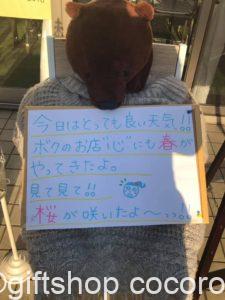 今日はとっても良い天気!!
ボクのお店"心"にも春が
やってきたよ。
見て見て!!
桜が咲いたよ～っっ!!
©giftshop cocoro